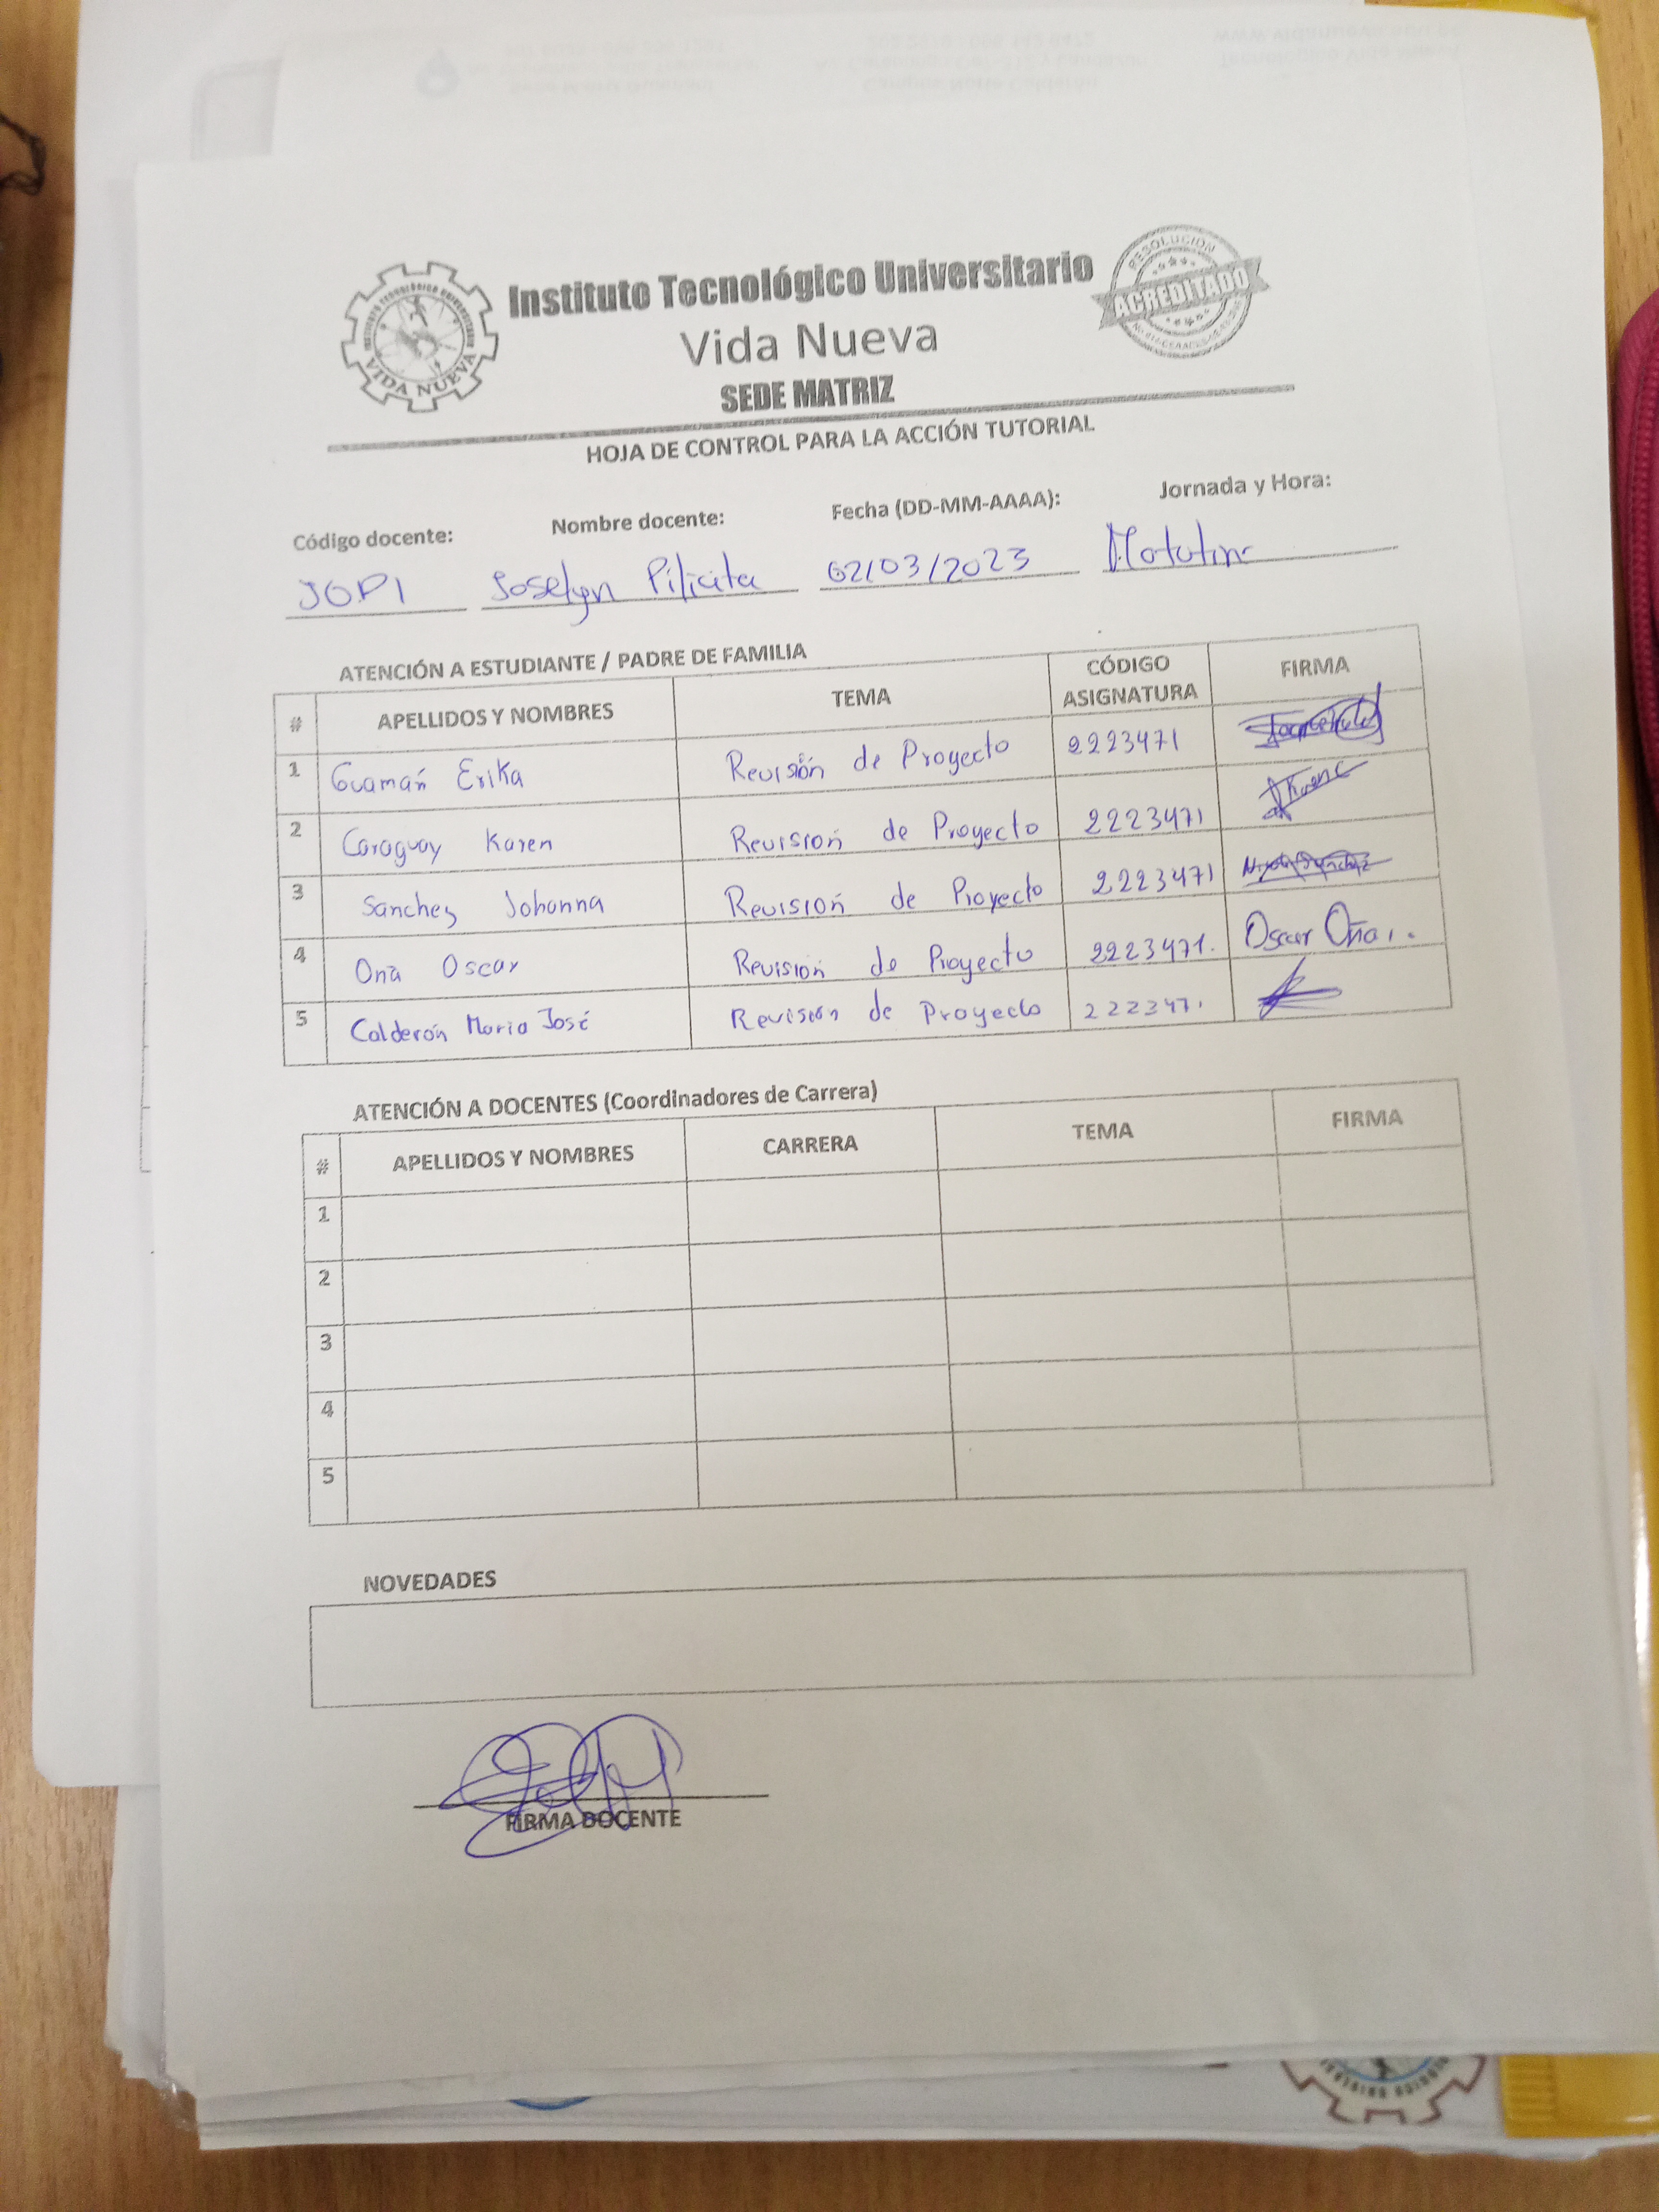 Instituto Tecnológico Universitario
Vida Nueva
SEDE MATRIZ
VIDA NUEVA
RESOLUCIÓN
ACREDITADO
HOJA DE CONTROL PARA LA ACCIÓN TUTORIAL
Código docente: Nombre docente: Fecha (DD-MM-AAAA): Jornada y Hora:
JOPI Joselyn Pilicita 02/03/2023 Matutina
ATENCIÓN A ESTUDIANTE / PADRE DE FAMILIA
# APELLIDOS Y NOMBRES TEMA CÓDIGO ASIGNATURA FIRMA
1 Guamán Erika Revisión de Proyecto 2223471
2 Caraguay Karen Revisión de Proyecto 2223471
3 Sanchez Johanna Revisión de Proyecto 2223471
4 Oña Oscar Revisión de Proyecto 2223471. Oscar Oña
5 Calderón Maria José Revisión de Proyecto 2223471
ATENCIÓN A DOCENTES (Coordinadores de Carrera)
# APELLIDOS Y NOMBRES CARRERA TEMA FIRMA
1
2
3
4
5
NOVEDADES
FIRMA DOCENTE